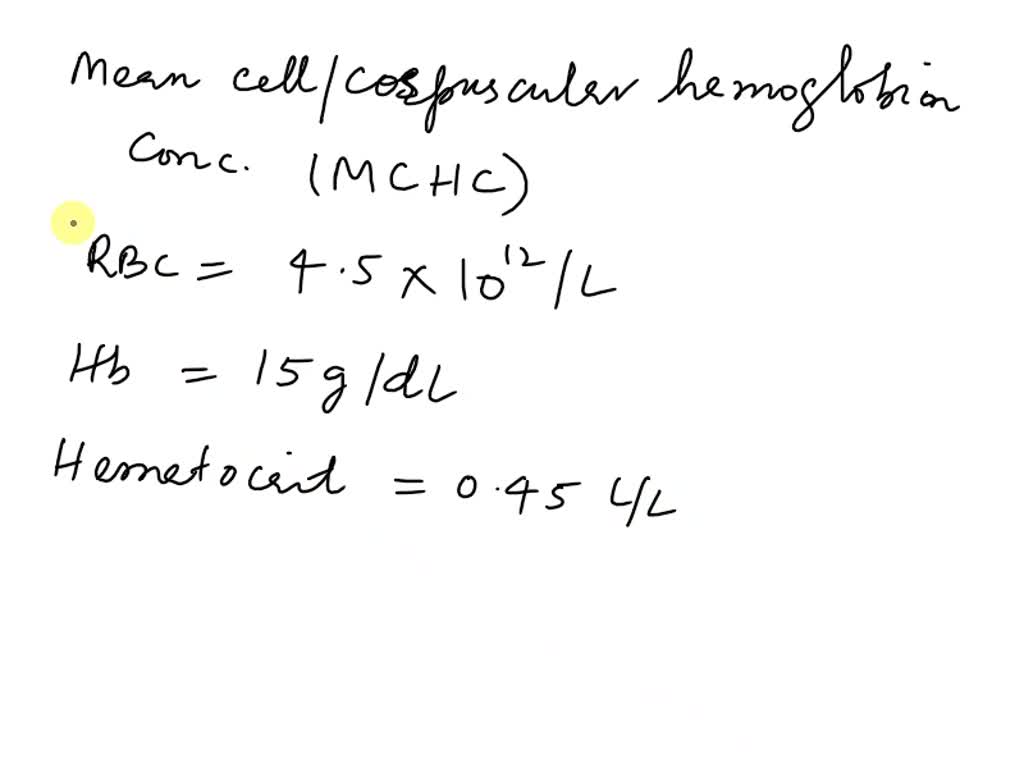 Mean cell/corpuscular hemoglobin
Conc. (MCHC)
RBC = 4.5 x 10^12/L
Hb = 15g/dL
Hematocrit = 0.45 L/L